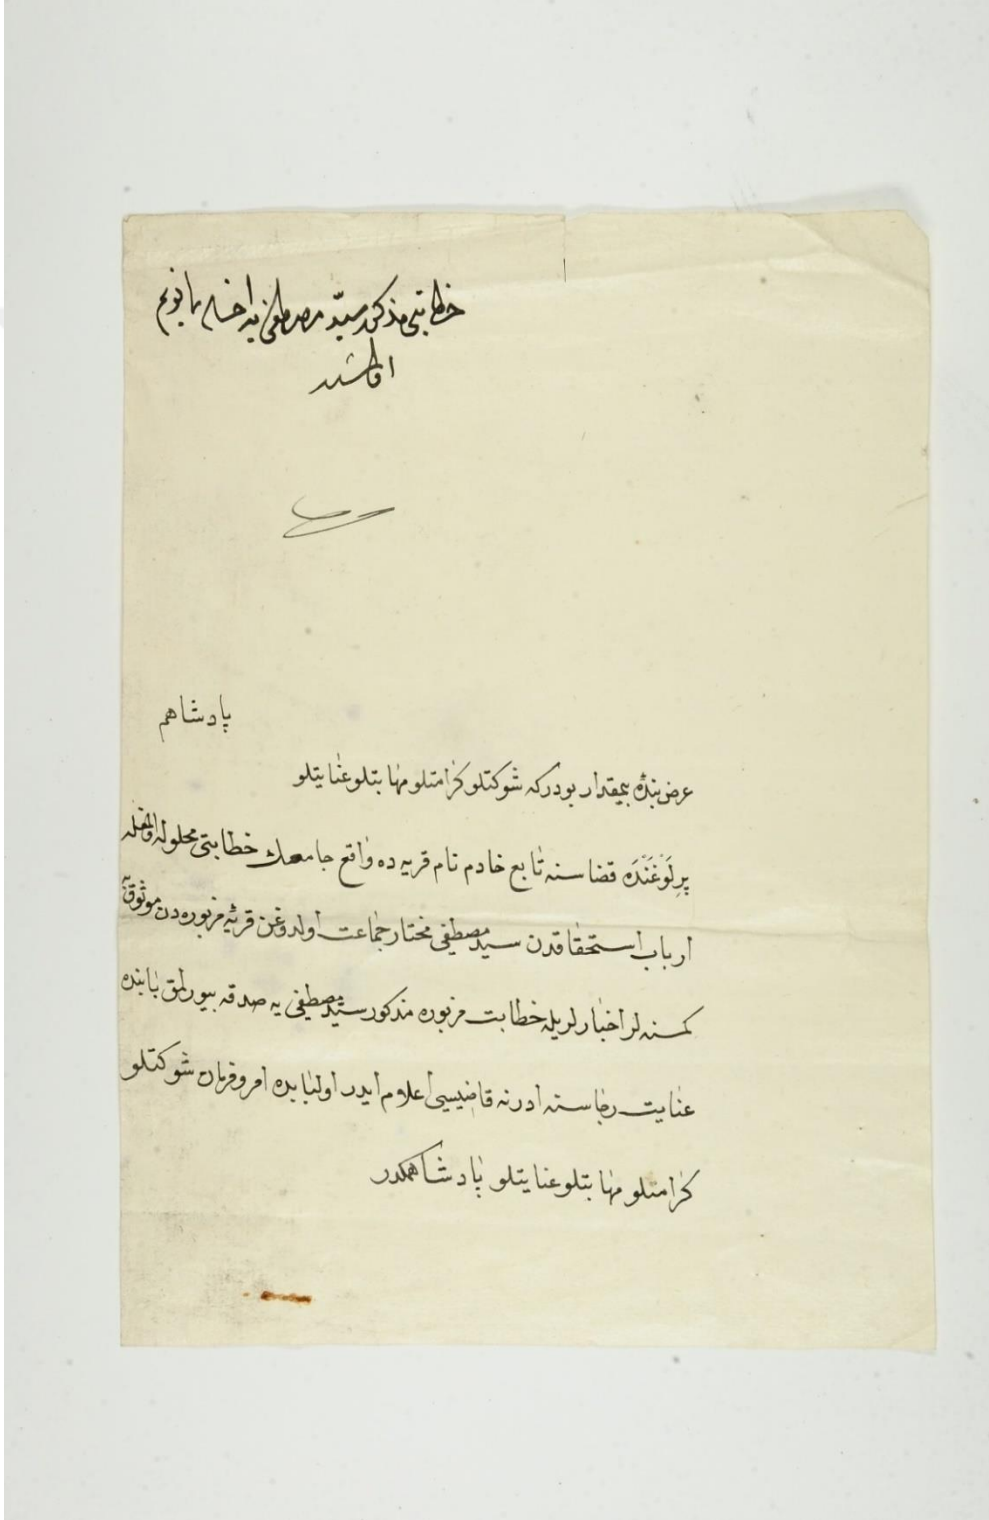 خطابتی مذکور سید مصطفی یه احسان همایونم
اولمشدر
پادشاهم
عرض بندهٔ بیمقدار بودرکه شوکتلو کرامتلو مهابتلو عنایتلو
پرلوغنده قضاسنه تابع خادم نام قریه ده واقع جامعك خطابتی محلوله اولمغله
ارباب استحقاقدن سید مصطفی مختار جماعت اولدوغن قریهٔ مزبوره دن موثوق به
کمسنه لر اخبارلریله خطابت مزبوره مذکور سید مصطفی یه صدقه بیورلمق بابنده
عنایت رجاسنه ادرنه قاضیسی اعلام ایدر اولبابده امر و فرمان شوکتلو
کرامتلو مهابتلو عنایتلو پادشاهمکدر